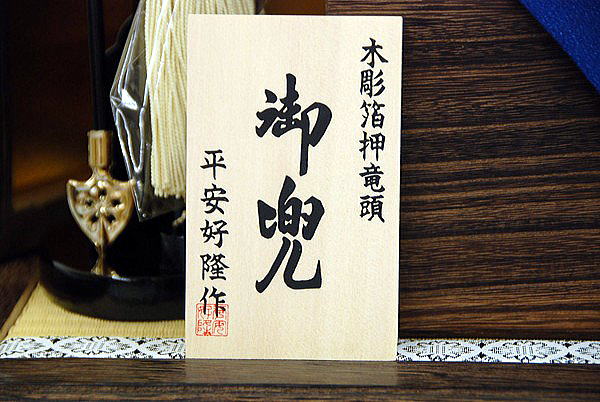 木彫箔押竜頭
御兜
平安好隆作